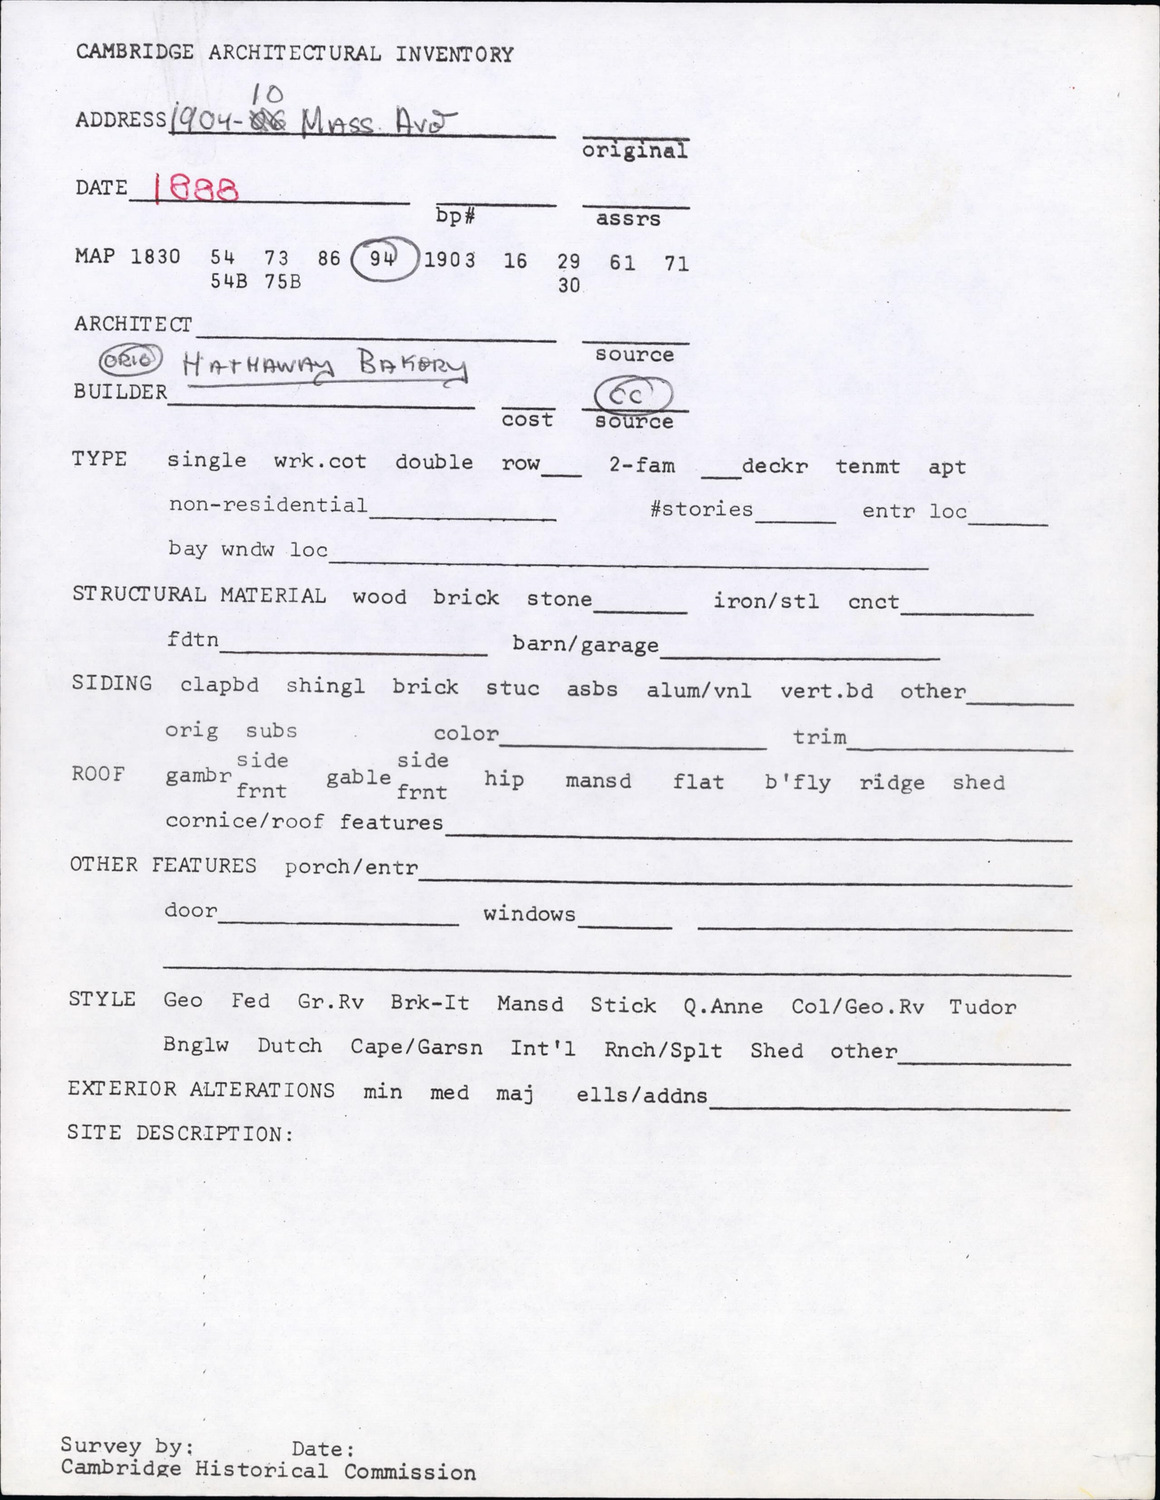 CAMBRIDGE ARCHITECTURAL INVENTORY
10
ADDRESS 1904- Mass. Ave
original
DATE 1888
bp# assrs
MAP 1830 54 73 86 94 1903 16 29 61 71
54B 75B 30
ARCHITECT
source
ORIG HATHAWAY BAKERY
BUILDER CC
cost source
TYPE single wrk.cot double row___ 2-fam ___deckr tenmt apt
non-residential #stories entr loc
bay wndw loc
STRUCTURAL MATERIAL wood brick stone iron/stl cnct
fdtn barn/garage
SIDING clapbd shingl brick stuc asbs alum/vnl vert.bd other
orig subs color trim
side side
ROOF gambr gable hip mansd flat b'fly ridge shed
frnt frnt
cornice/roof features
OTHER FEATURES porch/entr
door windows
STYLE Geo Fed Gr.Rv Brk-It Mansd Stick Q.Anne Col/Geo.Rv Tudor
Bnglw Dutch Cape/Garsn Int'l Rnch/Splt Shed other
EXTERIOR ALTERATIONS min med maj ells/addns
SITE DESCRIPTION:
Survey by: Date:
Cambridge Historical Commission